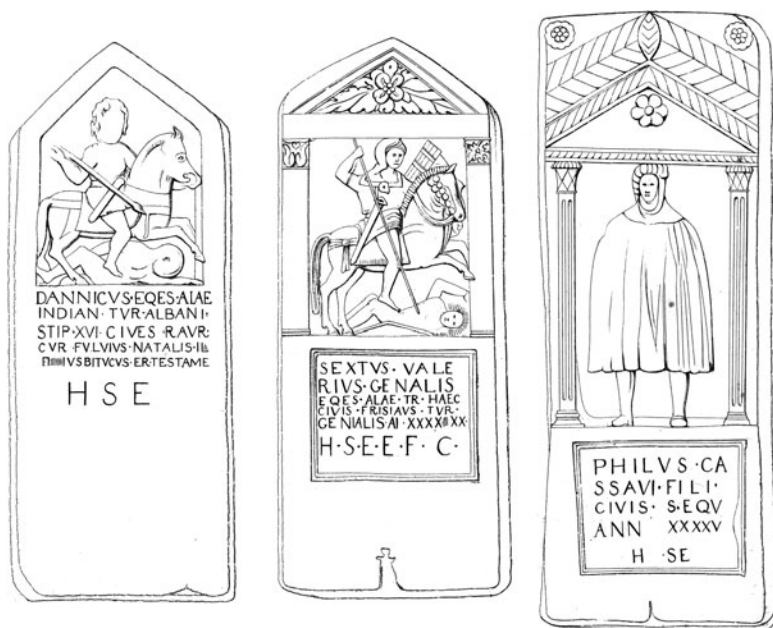 DANNICVS·EQES·ALAE
INDIAN·TVR·ALBANI·
STIP·XVI·CIVES·RAVR:
CVR·FVLVIVS·NATALIS·IL
IVSBITVCVS·ER·TESTAME
H S E
SEXTVS·VALE
RIVS·GENALIS
EQES·ALAE·TR·HAEC
CIVIS·FRISIAVS·TVR·
GENIALIS·AI·XXXX XX·
H·S·E·E·F·C·
PHILVS·CA
SSAVI·FILI
CIVIS·S·EQV
ANN XXXXV
H·SE